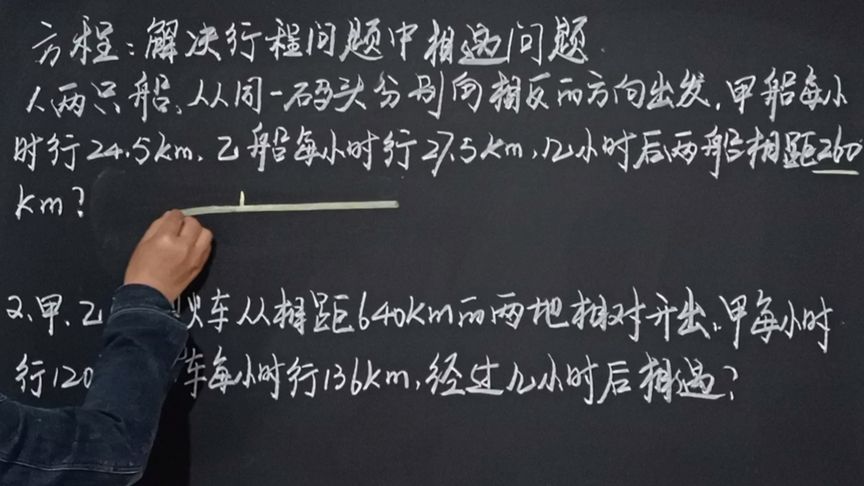 方程:解决行程问题中相遇问题
1、两只船,从同一码头分别向相反的方向出发,甲船每小
时行24.5km,乙船每小时行27.5km,几小时后两船相距260
km?
2、甲、乙 火车从相距640km的两地相对开出,甲每小时
行120 车每小时行136km,经过几小时后相遇?